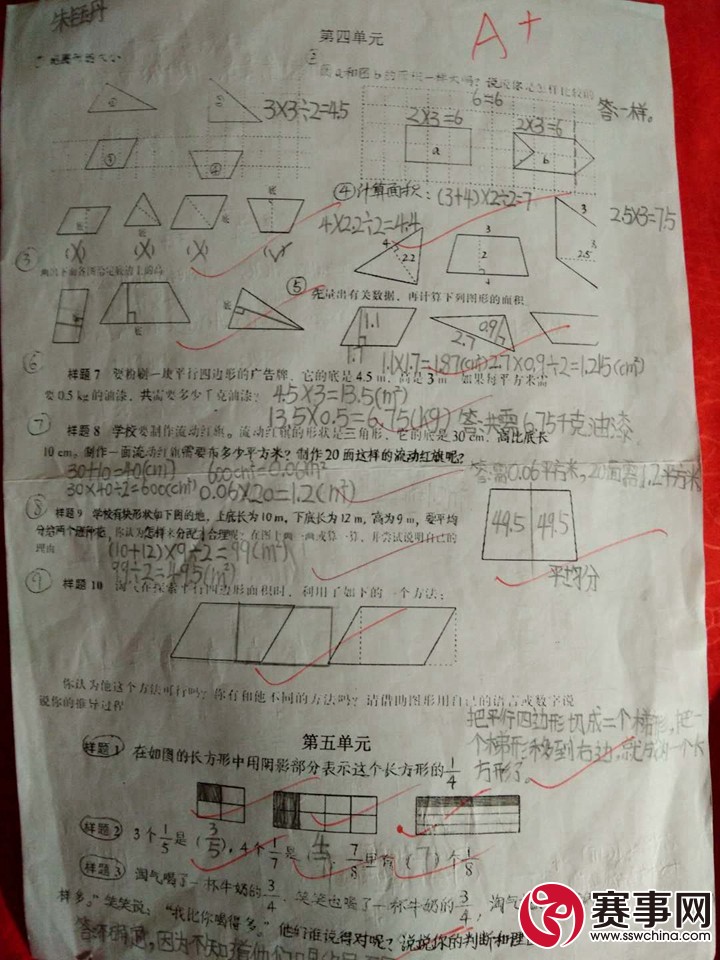 朱钰丹
第四单元
A+
面a和图b的面积一样大吗？说说你是怎样比较的
6=6
答一样。
① ② 3×3÷2=4.5
2×3=6 2×3=6
a b
③ ④
④计算面积：(3+4)×2÷2=7
底 底
4×2.2÷2=4.4
3 3 2.5×3=7.5
底 底
4 2.2 2 2.5 3
(×) (×) (×) (√) 4
③
画出下面各图给定底边上的高
⑤ 先量出有关数据，再计算下列图形的面积
底 底
1.1 0.9
1.7 2.7
1.1×1.7=1.87(cm²) 2.7×0.9÷2=1.215(cm²)
⑥ 样题7 要粉刷一块平行四边形的广告牌，它的底是4.5 m，高是3 m 如果每平方米需
要0.5 kg的油漆，共需要多少千克油漆？ 4.5×3=13.5(m²)
13.5×0.5=6.75(kg) 答:共需6.75千克油漆
⑦ 样题8 学校要制作流动红旗。流动红旗的形状是三角形，它的底是30 cm，高比底长
10 cm，制作一面流动红旗需要布多少平方米？制作20面这样的流动红旗呢？
30+10=40(cm) 600cm²=0.06m² 答:需0.06平方米，20面需1.2平方米
30×40÷2=600(cm²) 0.06×20=1.2(m²)
⑧ 样题9 学校有块形状如下图的地，上底长为10 m，下底长为12 m，高为9 m，要平均
分给两个班种花，你认为怎样来分配才合理呢？在图上画一画或算一算，并尝试说明自己的
理由 (10+12)×9÷2=99(m²)
99÷2=49.5(m²)
49.5 49.5
平均分
⑨ 样题10 淘气在探索平行四边形面积时，利用了如下的一个方法：
你认为他这个方法可行吗？你有和他不同的方法吗？请借助图形用自己的语言或数字说
说你的推导过程
把平行四边形切成二个梯形，把一
个梯形移到右边，就成为一个长
方形了。
第五单元
样题1 在如图的长方形中用阴影部分表示这个长方形的1/4
样题2 3个1/5是(3/5)，4个1/7是(4)，7/8里有(7)个1/8
样题3 淘气喝了一杯牛奶的3/4，笑笑也喝了一杯牛奶的3/4，淘气
样多。”笑笑说：“我比你喝得多。”他们谁说得对呢？说说你的判断和理
因为不知道他们
赛事网
www.sswchina.com